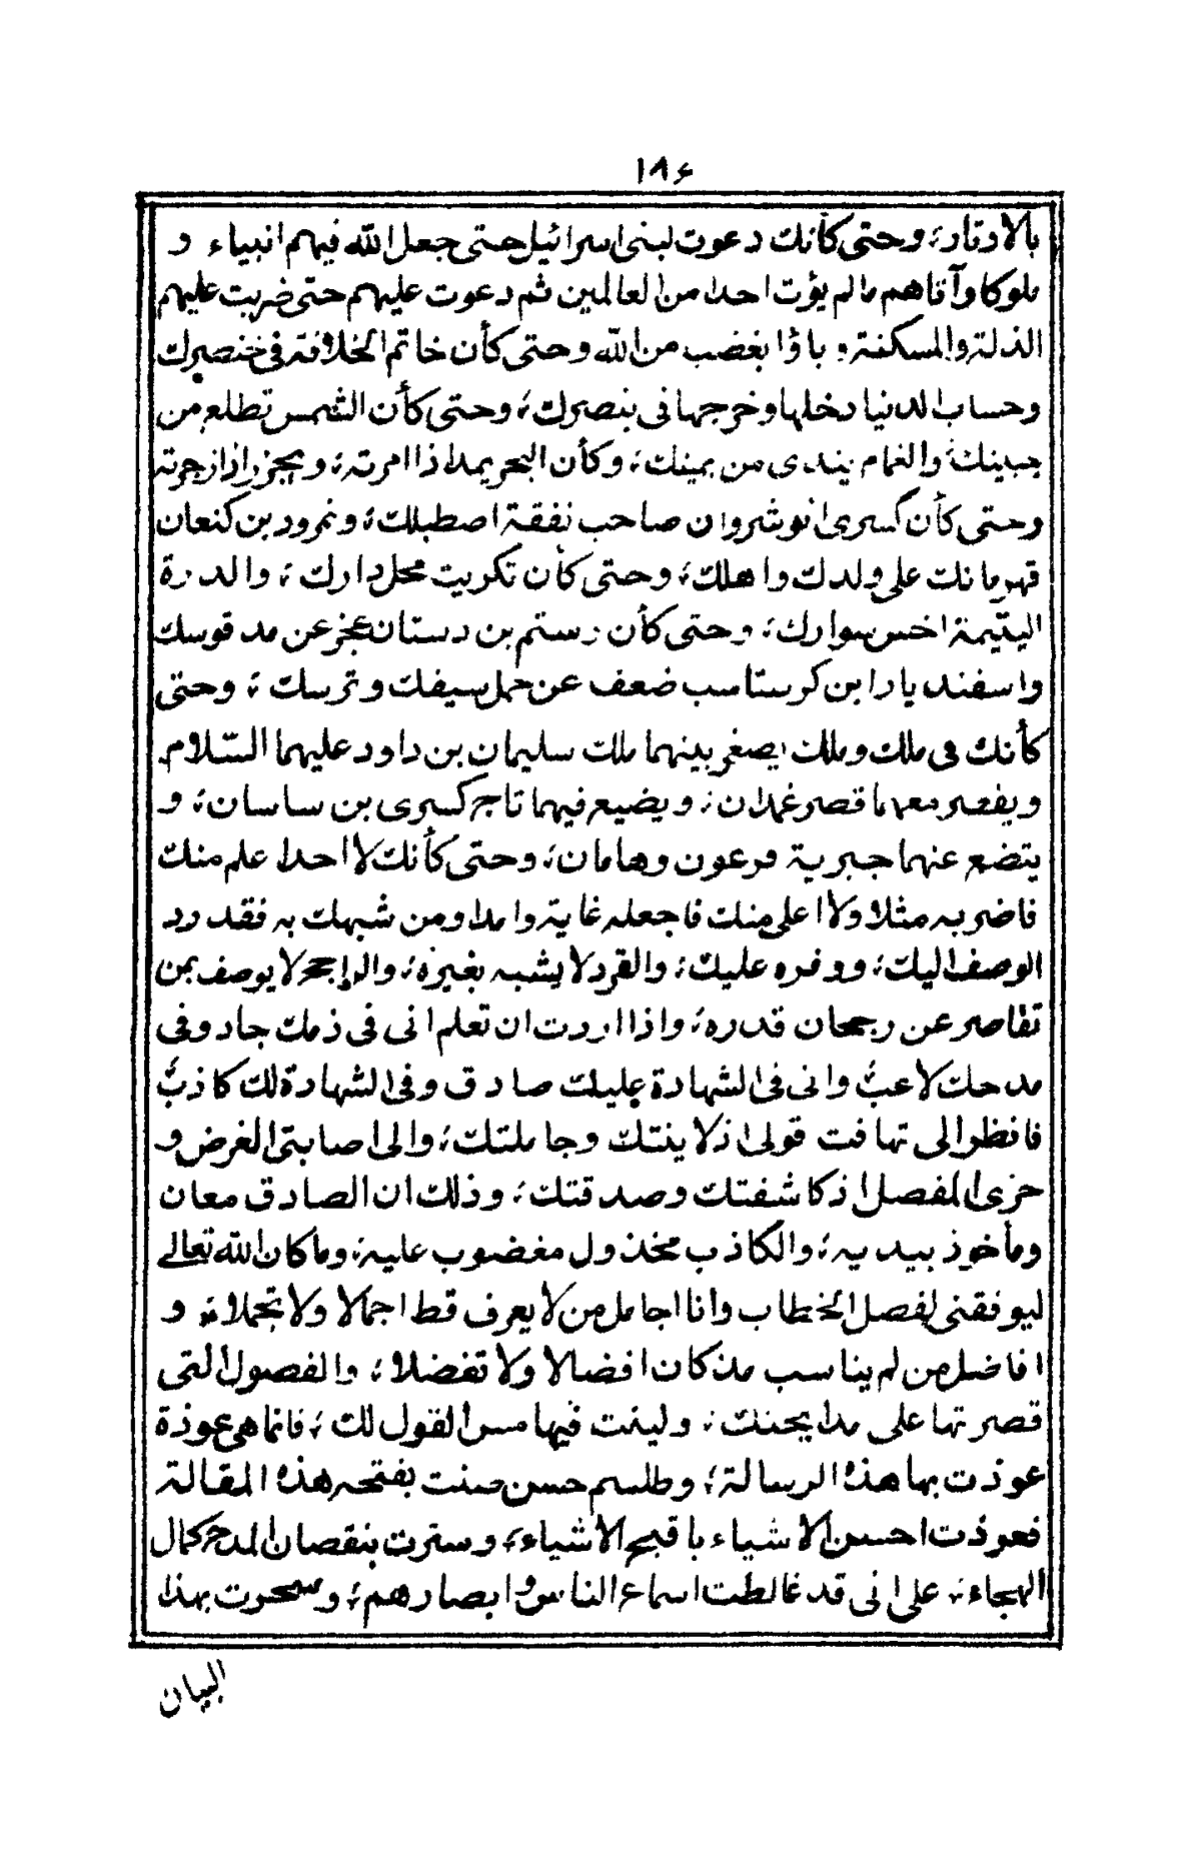 ١٨۶
بالاوتار؛ وحتى كأنك دعوت لبنى اسرائيل حتى جعل الله فيهم انبياء و
ملوكا وآتاهم ما لم يؤت احدا من العالمين ثم دعوت عليهم حتى ضربت عليهم
الذلة والمسكنة و باؤا بغضب من الله وحتى كأن خاتم الخلافة فى خنصرك
وحساب الدنيا دخلها وخرجها فى بنصرك؛ وحتى كأن الشمس تطلع من
جبينك والغمام يندى من يمينك؛ وكأن البحر يمد اذا امرته؛ ويجزر اذا زجرته
وحتى كأن كسرى انوشروان صاحب نفقة اصطبلك؛ ونمرود بن كنعان
قهرمانك على ولدك واهلك؛ وحتى كأن تكريت محل دارك؛ والدرة
اليتيمة اخس سوارك؛ وحتى كأن رستم بن دستان عجز عن مد قوسك
واسفنديار ابن كرستاسب ضعف عن حمل سيفك وترسك؛ وحتى
كأنك فى ملك وملك يصغر بينهما ملك سليمان بن داود عليهما السّلام
ويقصر معهما قصر غمدان؛ ويضيع فيهما تاج كسرى بن ساسان؛ و
يتضع عنهما جبرية فرعون وهامان؛ وحتى كأنك لا احدا علم منك
فاضربه مثلا ولا اعلى منك فاجعله غاية وامدا ومن شبهك به فقد رد
الوصف اليك؛ ووفره عليك؛ والفرد لا يشبه بغيره؛ والراجح لا يوصف بمن
تقاصر عن رجحان قدره؛ واذا اردت ان تعلم انى فى ذمك جاد وفى
مدحك لاعبٌ وانى فى الشهادة عليك صادق وفى الشهادة لك كاذبٌ
فانظر الى تهافت قولى اذ لاينتك وجاملتك؛ والى اصابتى الغرض و
حزى المفصل اذ كاشفتك وصدقتك؛ وذلك ان الصادق معان
ومأخوذ بيديه؛ والكاذب مخذول مغضوب عليه؛ وما كان الله تعالى
ليوفقنى لفصل الخطاب وانا اجامل من لا يعرف قط اجمالا ولا تجملا؛ و
افاضل من لم يناسب مذ كان افضالا ولا تفضلا؛ والفصول التى
قصرتها على مدايحنك؛ ولينت فيها مس القول لك؛ فانما هى عوذة
عوذت بها هذه الرسالة؛ وطلسم حسن صنت بقتحه هذه المقالة
فعوذت احسن الاشياء باقبح الاشياء؛ وسترت بنقصان المدح كمال
الهجاء؛ على انى قد غالطت اسماع الناس وابصارهم؛ وسحرت بهذا
البيان